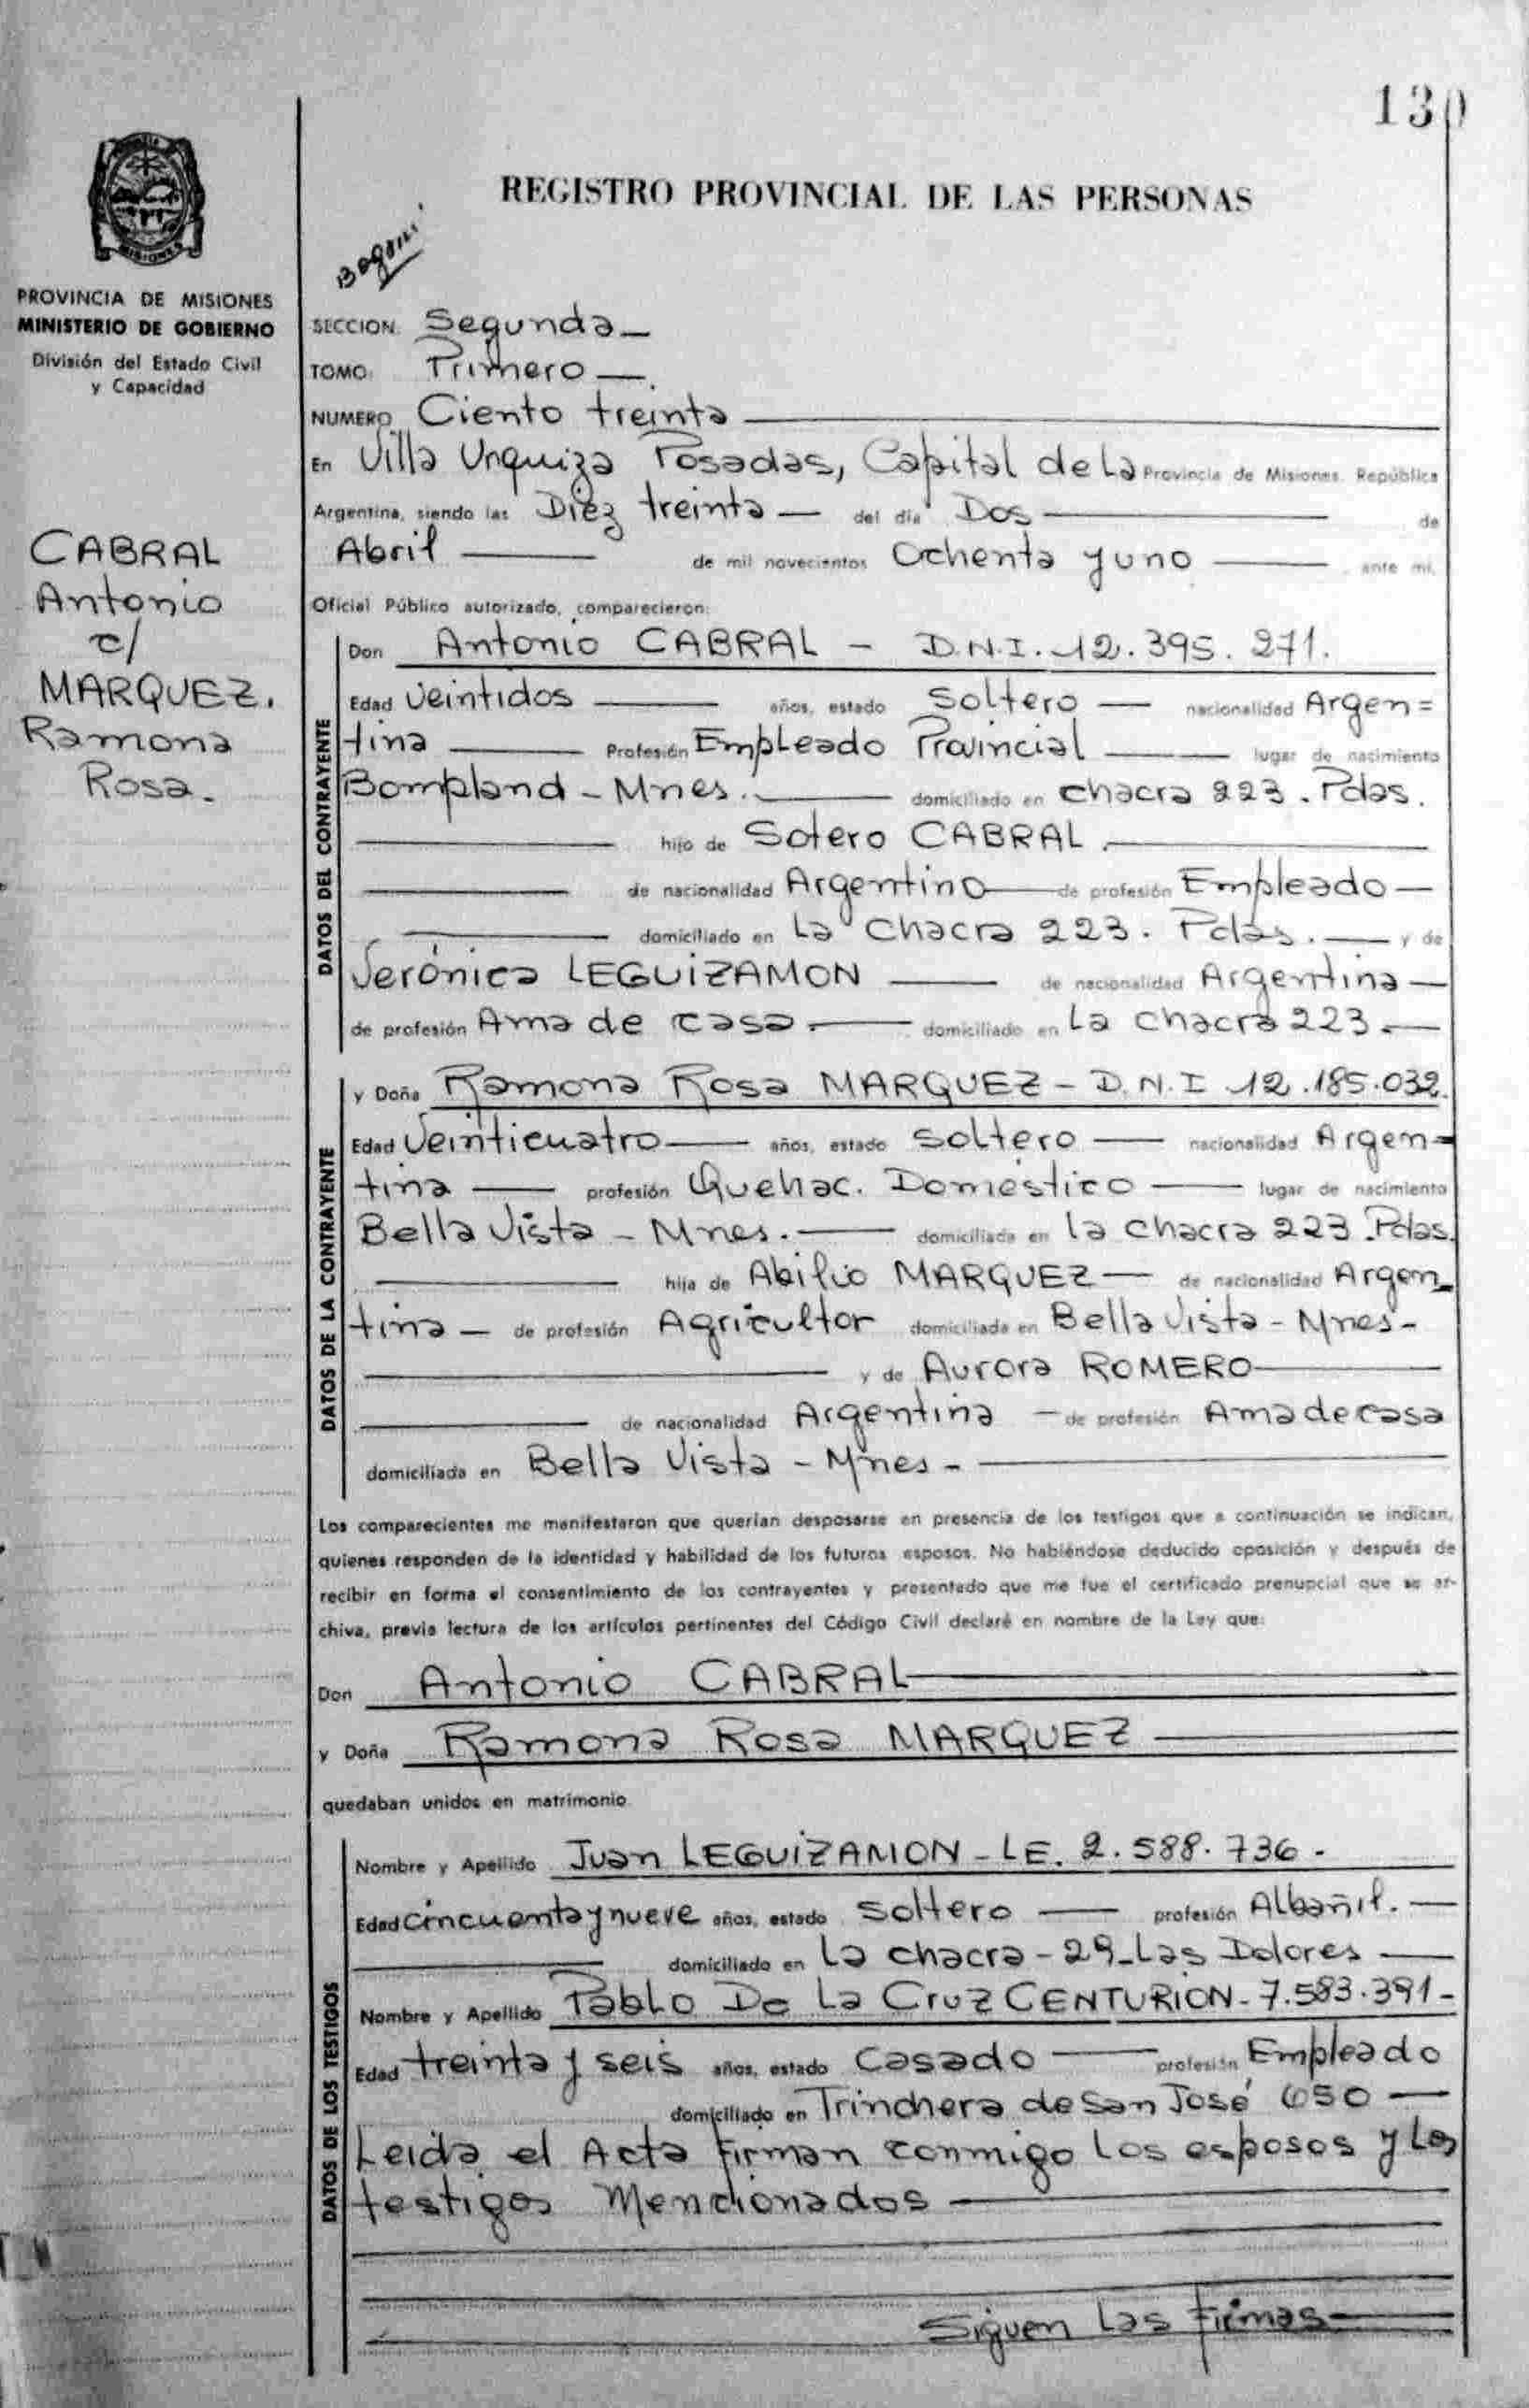 130
REGISTRO PROVINCIAL DE LAS PERSONAS
MISIONES
PROVINCIA DE MISIONES
MINISTERIO DE GOBIERNO
División del Estado Civil
y Capacidad
CABRAL
Antonio
c/
MARQUEZ.
Ramona
Rosa.
SECCION: Segunda
TOMO: Primero
NUMERO Ciento treinta
En Villa Urquiza Posadas, Capital de La Provincia de Misiones. República
Argentina, siendo las Diez treinta del día Dos de
Abril de mil novecientos Ochenta y uno ante mí,
Oficial Público autorizado, comparecieron:
DATOS DEL CONTRAYENTE
Don Antonio CABRAL - D.N.I. 12.395.271.
Edad Veintidos años, estado Soltero nacionalidad Argen=
tina Profesión Empleado Provincial lugar de nacimiento
Bompland - Mnes. domiciliado en chacra 223. Pdas.
hijo de Sotero CABRAL
de nacionalidad Argentino de profesión Empleado
domiciliado en La Chacra 223. Pdas. y de
Verónica LEGUIZAMON de nacionalidad Argentina
de profesión Ama de casa domiciliado en La chacra 223.
DATOS DE LA CONTRAYENTE
y Doña Ramona Rosa MARQUEZ - D.N.I 12.185.032.
Edad Veinticuatro años, estado Soltero nacionalidad Argen=
tina profesión Quehac. Doméstico lugar de nacimiento
Bella Vista - Mnes. domiciliada en la Chacra 223. Pdas.
hija de Abilio MARQUEZ de nacionalidad Argen_
tina de profesión Agricultor domiciliada en Bella Vista - Mnes-
y de Aurora ROMERO
de nacionalidad Argentina de profesión Ama de casa
domiciliada en Bella Vista - Mnes -
Los comparecientes me manifestaron que querían desposarse en presencia de los testigos que a continuación se indican,
quienes responden de la identidad y habilidad de los futuros esposos. No habiéndose deducido oposición y después de
recibir en forma el consentimiento de los contrayentes y presentado que me fue el certificado prenupcial que se ar-
chiva, previa lectura de los artículos pertinentes del Código Civil declaré en nombre de la Ley que:
Don Antonio CABRAL
y Doña Ramona Rosa MARQUEZ
quedaban unidos en matrimonio
DATOS DE LOS TESTIGOS
Nombre y Apellido Juan LEGUIZAMON - LE. 2.588.736.
Edad Cincuenta y nueve años, estado Soltero profesión Albañil.
domiciliado en La chacra - 29 - Las Dolores
Nombre y Apellido Pablo De La Cruz CENTURION - 7.583.391 -
Edad treinta y seis años, estado Casado profesión Empleado
domiciliado en Trinchera de San José 650
Leida el Acta firman conmigo los esposos y Los
testigos Mencionados
Siguen Las Firmas